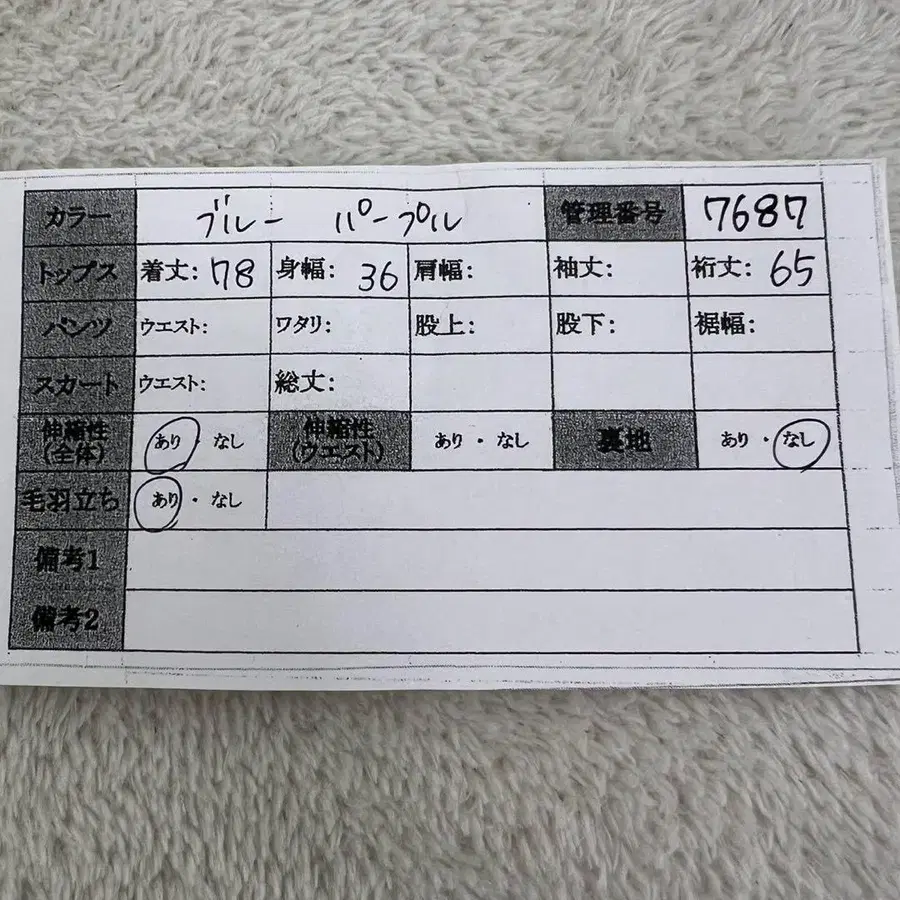 カラー ブルー パープル 管理番号 7687
トップス 着丈: 78 身幅: 36 肩幅: 袖丈: 裄丈: 65
パンツ ウエスト: ワタリ: 股上: 股下: 裾幅:
スカート ウエスト: 総丈:
伸縮性 (全体) あり・なし 伸縮性 (ウエスト) あり・なし 裏地 あり・なし
毛羽立ち あり・なし
備考1
備考2